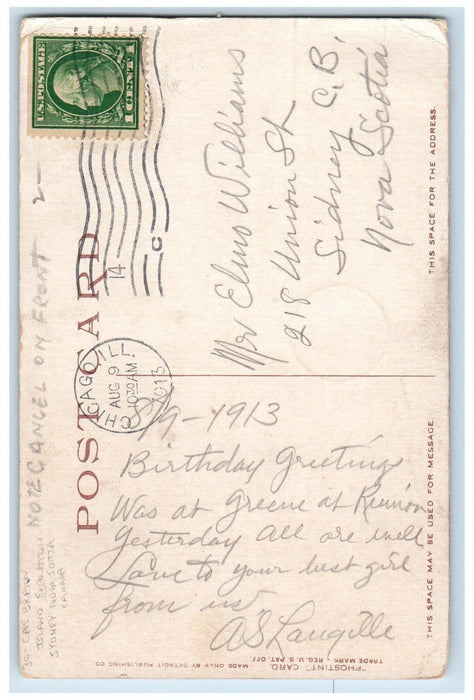 U.S. POSTAGE
1 CENT 1
CHICAGO, ILL.
AUG 9
10 30 AM
1913
14
C
POST CARD
Mrs Elmo Williams
218 Union St
Sidney C.B.
Nova Scotia
THIS SPACE FOR THE ADDRESS.
8/9-1913
Birthday Greetings
Was at Greene at Reunion
Yesterday All are well
Love to your best girl
from us
A S Langille
THIS SPACE MAY BE USED FOR MESSAGE.
"PHOSTINT" CARD.
TRADE MARK - REG. U.S. PAT. OFF
MADE ONLY BY DETROIT PUBLISHING CO.
NOTE CANCEL ON FRONT 2-
30- CAPE BRETON
ISLAND
SYDNEY NOVA SCOTIA
CANADA